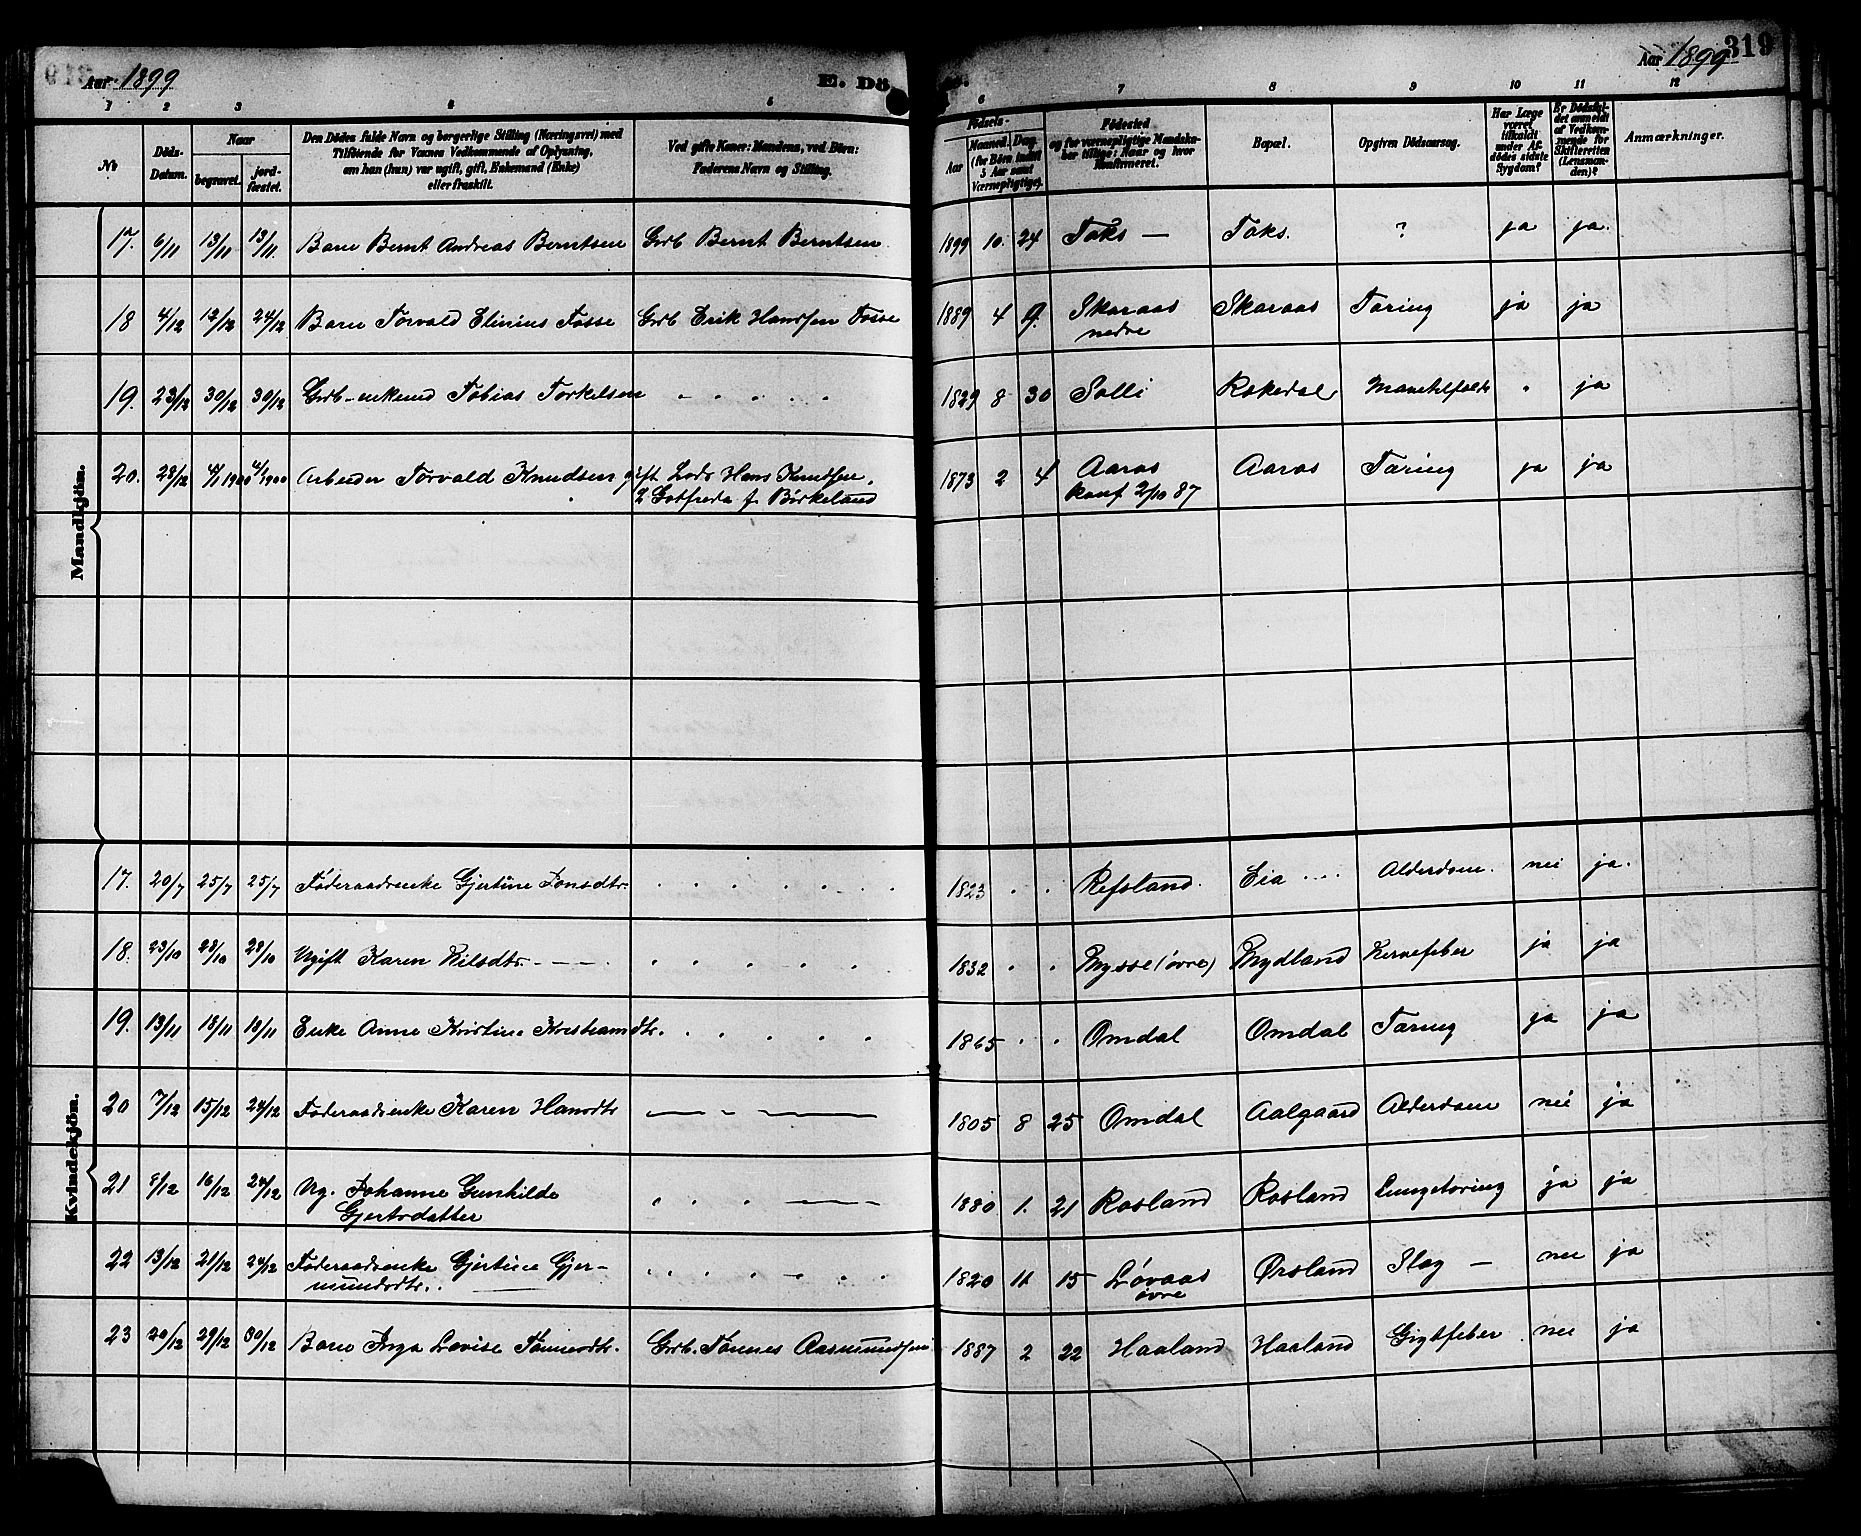 Aar 1899
E. Dö
Aar 1899
319
1 2 3 4 5 6 7 8 9 10 11 12
No
Döds-Datum.
Naar
begravet.
jord-fæstet.
Den Dödes fulde Navn og borgerlige Stilling (Næringsvei) med
Tilföiende for Voxnes Vedkommende af Oplysning,
om han (hun) var ugift, gift, Enkemand (Enke)
eller fraskilt.
Ved gifte Koner: Mandens, ved Börn:
Faderens Navn og Stilling.
Födsels-
Aar
Maaned. Dag.
(for Börn indtil
5 Aar samt
Værnepligtige).
Födested
og for værnepligtige Mandska-
ber tillige: Naar og hvor
konfirmeret.
Bopæl.
Opgiven Dödsaarsag.
Har Læge
været
tilkaldt
under Af-
dödes sidste
Sygdom?
Er Dödsfal-
det anmeldt
af Vedkom-
mende for
Skifteretten
(Lensman-
den)?
Anmærkninger.
Mandkjön.
17. 6/11 13/11 13/11. Barn Bernt Andreas Berntsen Grb Bernt Berntsen 1899 10. 24 Toks — Toks. ? ja ja.
18 4/12 12/12 24/12 Barn Torvald Elinius Tosse Grb Erik Hansen Tosse 1889 4 9. Skaraas
nedre Skaraas Tæring ja ja
19. 23/12 30/12 30/12 Grb-enkemd Tobias Torkelsen 1829 8 30 Solli Rekedal ja
20. 28/12 4/1 1900 4/1 1900 Arbeider Torvald Knudsen gift Lods Hans Knudsen,
2 Gotfreda f. Birkeland 1873 2 4 Aaros
konf 2/10 87 Aaros Tæring ja ja
Kvindekjön.
17. 20/7 25/7 25/7 Föderaadsenke Gjertine Jonsdtr. 1823 . . Refsland. Eia .... Alderdom. nei ja.
18. 23/10 28/10 28/10 Ugift Karen Nilsdtr. 1832 . . Mysse (övre) Mydland Nervefeber ja ja
19. 13/11 18/11 18/11 Enke Anne Kristine Kristiansdtr. 1865 . . Omdal Omdal Tæring ja ja
20 7/12 15/12 24/12 Föderaadsenke Karen Hansdtr 1805 8 25 Omdal Aalgaard Alderdom nei ja
21 8/12 16/12 24/12 Ug. Johanne Gunhilde
Gjertsdatter 1880 1. 21 Rosland Rosland Lungetæring ja ja
22 13/12 21/12 24/12 Föderaadsenke Gjertine Gjer-
mundsdtr. 1820 11 15 Lövaas
övre Örsland Slag — nei ja
23 20/12 29/12 30/12 Barn Inga Lovise Tönnesdtr. Grb. Tönnes Aasmundsen 1887 2 22 Haaland Haaland Gigtfeber nei ja